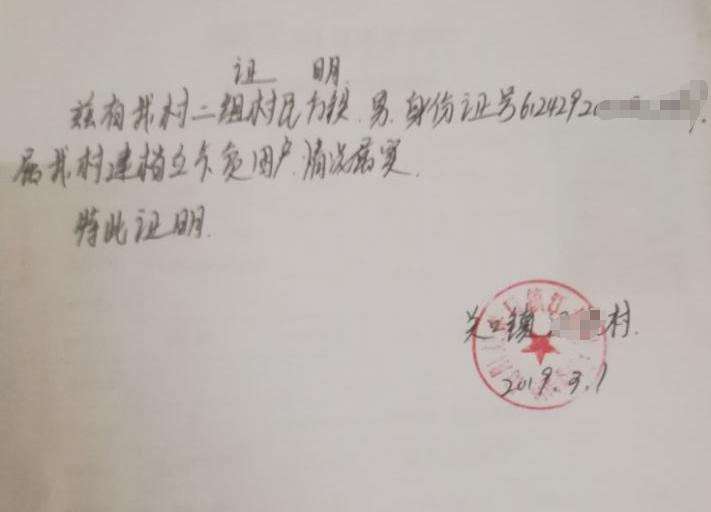 证 明
兹有我村二组村民方锁,男,身份证号6124292
属我村建档立卡贫困户,情况属实.
特此证明.
关口镇 村.
2019.3.1